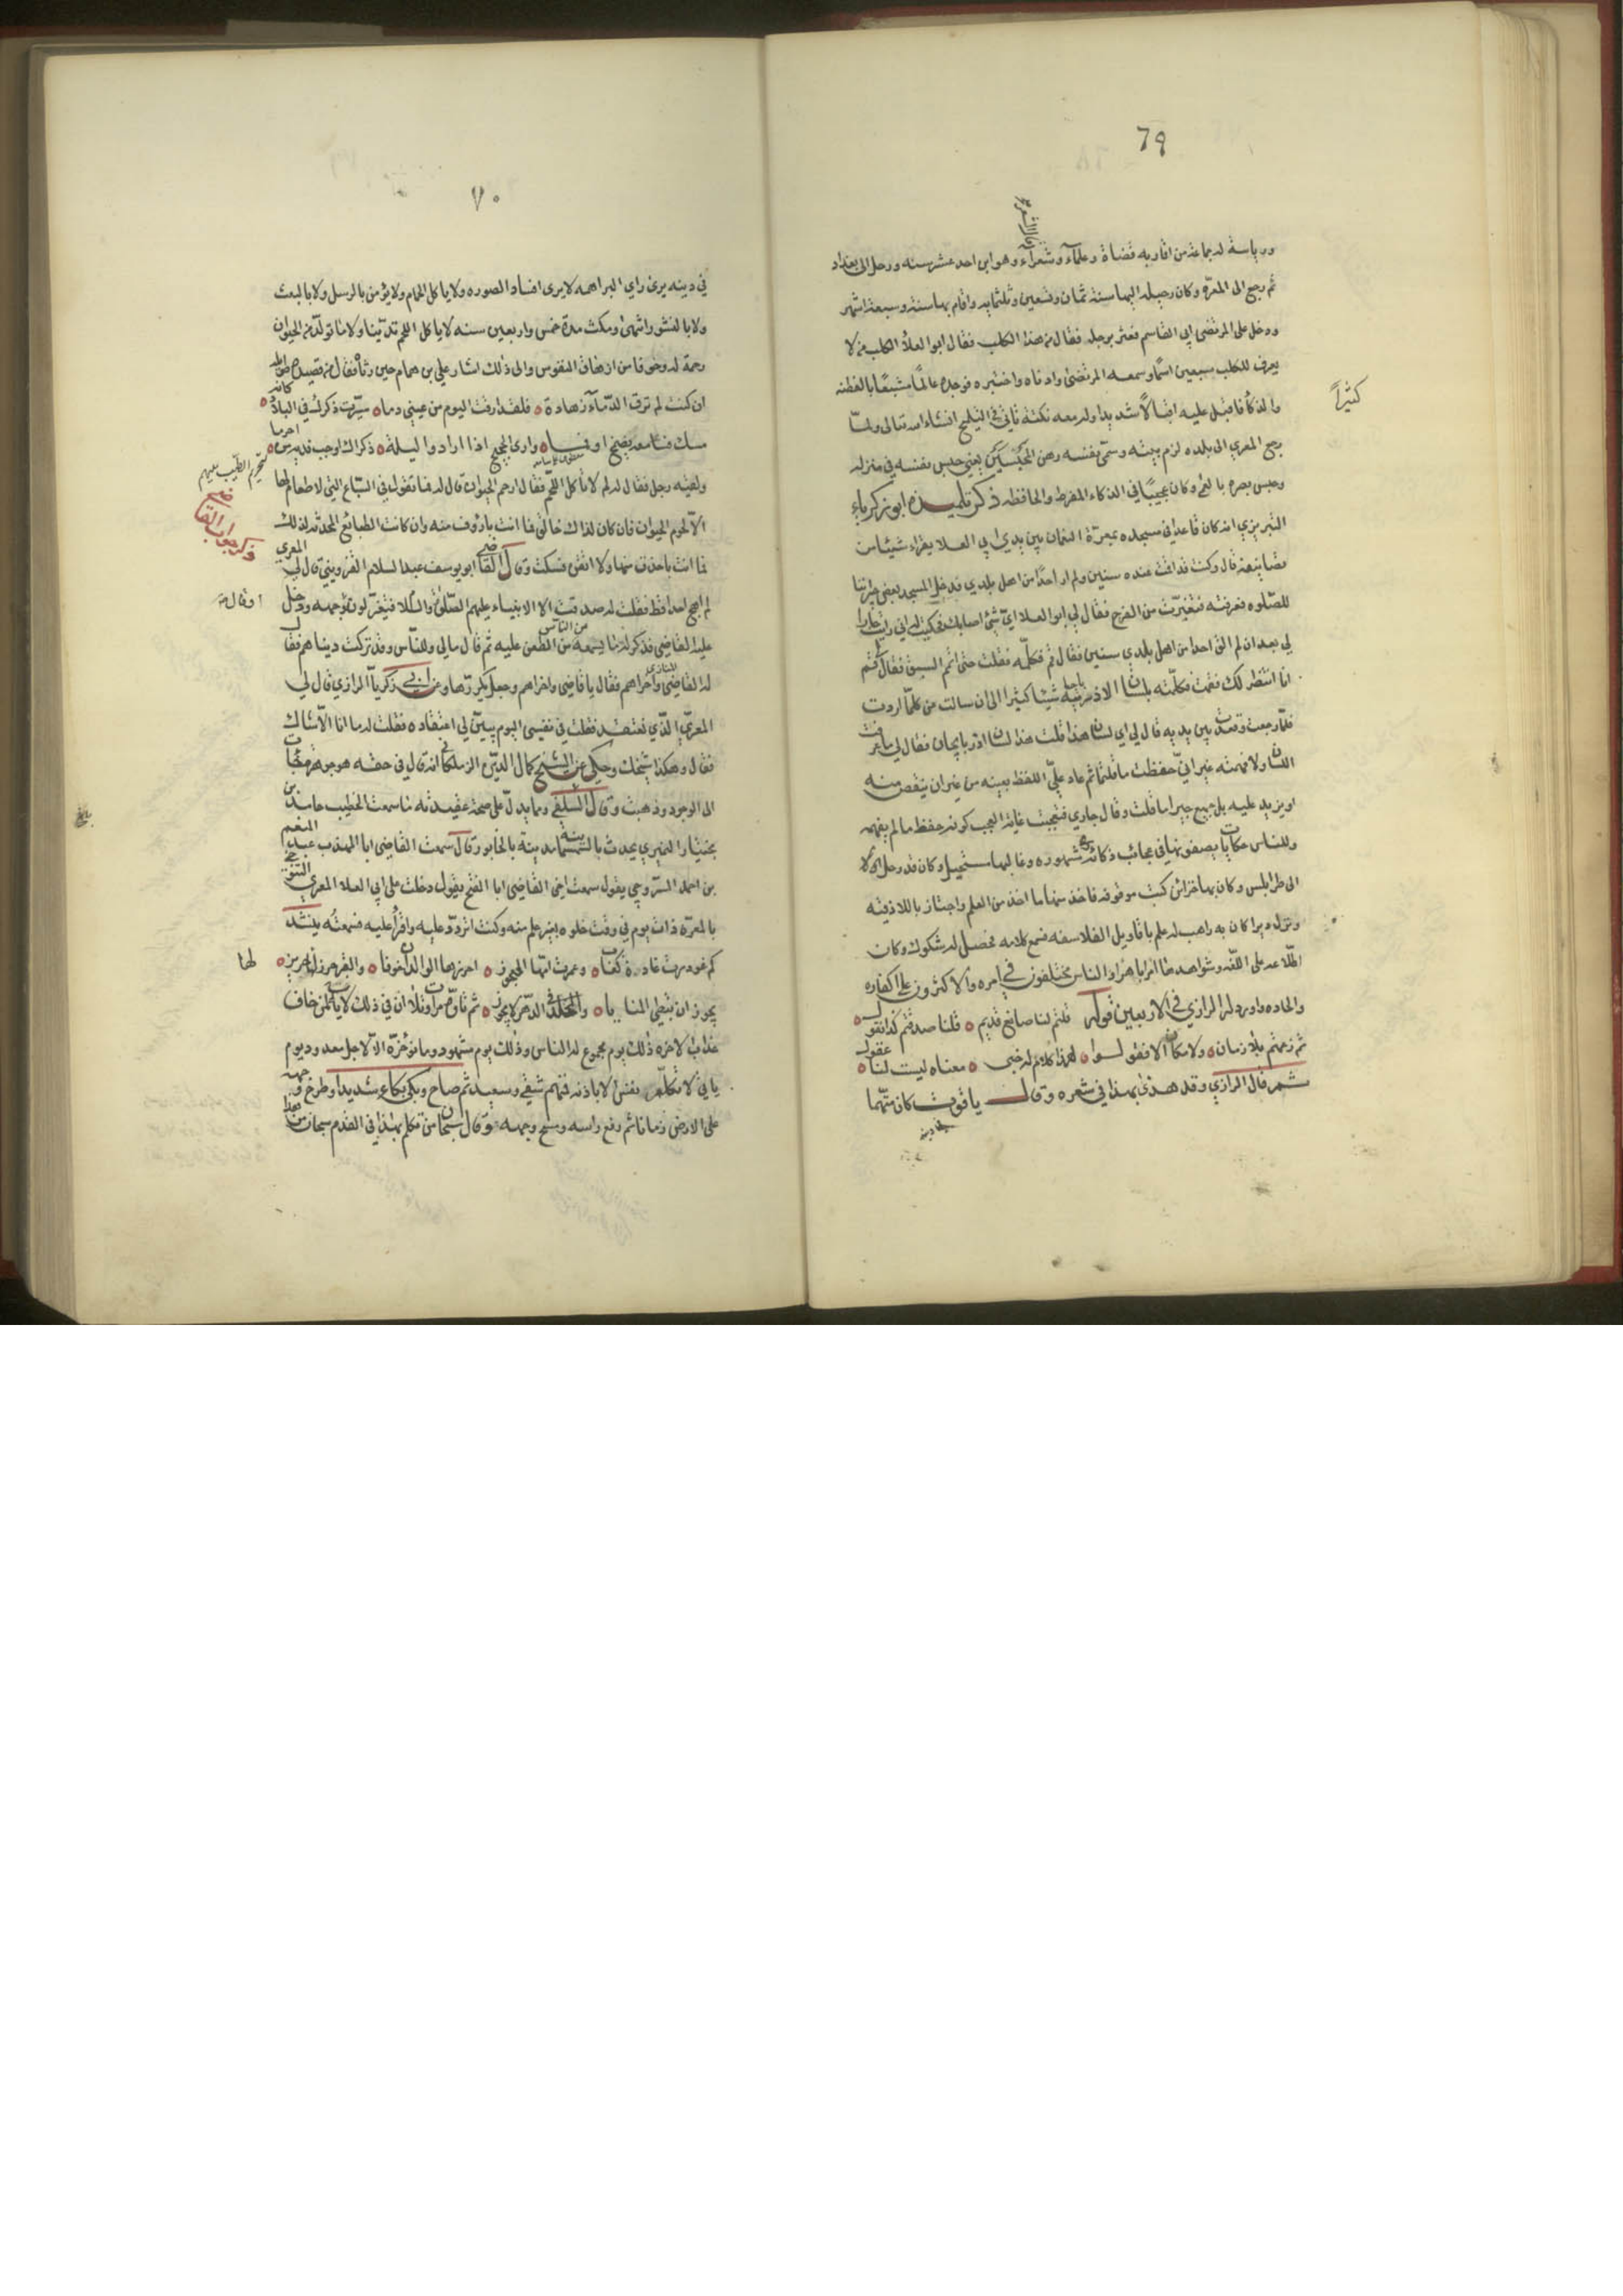 ٦٩
قال الشعر
ورياسة له جماعة من اقاربه قضاة وعلماء وشعراء وهو ابن احد عشر سنه ورحل الى بغداد
ثم رجع الى المعرّه وكان رحيله اليها سنة ثمان وتسعين وثلثمايه واقام بها سنة وسبعة اشهر
ودخل على المرتضى ابي القاسم فعثر برجل فقال من هذا الكلب فقال ابو العلاء الكلب من لا
يعرف للكلب سبعين اسمًا وسمعه المرتضى وادناه واختبره فوجده عالمًا مشبعًا بالفطنه
كثيرًا
والذكاء فاقبل عليه اقبالًا شديدا وله معه نكتة تاتي في التلميح انشاء الله تعالى ولمّا
رجع المعري الى بلده لزم بيته وسمّى نفسه رهن المحبسين يعني حبس نفسه في منزله
وحبس بصره بالعمى وكان عجيبًا في الذكاء المفرط والحافظه ذكر تلميذه ابو زكرياء
التبريزي انه كان قاعدا في مسجده بمعرّة النعمان بين يدي ابي العلا يقراء شيئا من
تصانيفه قال وكنت قد اقمت عنده سنين ولم ار احدًا من اهل بلدي فدخل المسجد بعض جيراننا
للصّلوه فعرفته فتغيّرت من الفرح فقال لي ابو العلا ايّ شئ اصابك فحكيت له اني رايت جارا
لي بعد ان لم الق احدا من اهل بلدي سنين فقال قم فكلّمه فقلت حتى اتمّ السبق فقال قم
انا انتظر لك فقمت فكلّمته بلسان الاذربيه شيئا كثيرا الى ان سالت عن كلّما اردت
فلمّا رجعت وقعدت بين يديه قال لي اي لسان هذا قلت هذا لسان اذربايجان فقال لي ما عرفت
اللسان ولا فهمته غير انّي حفظت ما قلتما ثم عاد عليّ اللفظ بعينه من غير ان ينقص منه
او يزيد عليه بل جميع ما قلت وقال جاري فتعجّبت غاية العجب كونه حفظ ما لم يفهمه
وللناس حكايات يصفونها في عجائب ذكائه مشهوره وغالبها مستحيل وكان قد رحل اوّلا
الى طرابلس وكان بها خزائن كتب موقوفه فاخذ منها ما اخذ من العلم واجتاز باللاذقيه
ونزل ديرا كان به راهب له علم باقاويل الفلاسفه فسمع كلامه فحصل له شكوك وكان
اطّلاعه على اللغه وشواهدها امرا باهرا والناس مختلفون في امره والاكثرون على اكفاره
والحاده واورد له الرازي في الاربعين قوله قلتم لنا صانع قديم ٥ قلنا صدقتم كذا نقول ٥
ثم زعمتم بلا زمان ٥ ولا مكان الا فقولوا ٥ هذا كلام له خبى ٥ معناه ليست لنا عقول ٥
ثم قال الرازي وقد هذى بهذا في شعره وقال ياقوت كان متّهما
في دينه
٧٠
في دينه يرى راي البراهمه لا يرى افساد الصوره ولا ياكل اللحم ولا يؤمن بالرسل ولا بالبعث
ولا بالنشور انتهى ومكث مدة خمس واربعين سنه لا ياكل اللحم تديّنا ولا ما تولّد من الحيوان
رحمة له وخوفا من ازهاق النفوس والى ذلك اشار علي بن همام حين رثاه فقال من قصيدة طويله
ان كنت لم ترق الدّماء زهادة ٥ فلقد ارقت اليوم من عيني دما ٥ سيّرت ذكرك في البلاد كانّه ٥
مسك فسامعه يضمخ او فما ٥ وارى الحجيج اذا ارادوا ليلة ٥ ذكراك اوجب فديه من احرما ٥
ولقيه رجل فقال له لم لا تاكل اللحم فقال ارحم الحيوان قال له فما تقول في السباع التي لا طعام لها
تحريم الطيب عليهم
الّا لحوم الحيوان فان كان لذلك خالق فما انت باروف منه وان كانت الطبائع المحدثه لذلك
فما انت باحذق منها ولا اتقن فسكت وقال القاضي ابو يوسف عبد السلام القزويني قال لي المعري
ذكر جواب القاضي
لم اهج احدا قط فقلت له صدقت الا الانبياء عليهم الصّلوة والسّلام فتغيّر لون وجهه ودخل
او قال
عليه القاضي فذكر له ما يسمعه من الناس من الطعن عليه ثم قال مالي وللنّاس وقد تركت دنياهم فقال
له القاضي واخراهم فقال يا قاضي واخراهم وجعل يكرّرها وعن ابي زكريّا الرازي قال لي
المعرّي ما الّذي تعتقد فقلت في نفسي اليوم يتبيّن لي اعتقاده فقلت له ما انا الّا شاكّ
فقال وهكذا شيخك وحكي عن الشيخ كمال الدين الزملكاني انه قال في حقه هو جوهرة جاءت
الى الوجود وذهبت وقال السلفي وما يدلّ على صحة عقيدته ما سمعت الخطيب حامد بن
بختيار النميري يحدث بالسمسمانيه مدينة بالخابور قال سمعت القاضي ابا المهذب عبد المنعم
بن احمد السروجي يقول سمعت اخي القاضي ابا الفتح يقول دخلت على ابي العلا المعري التنوخي
بالمعرّه ذات يوم في وقت خلوه بغير علم منه وكنت اتردّد عليه واقرأ عليه فسمعته ينشد
كم غودرت غادة كعاب ٥ وعمرت امّها العجوز ٥ احرزها الوالدان خوفا ٥ والقبر حرز لها حريز ٥
لها
يجوز ان تبطي المنايا ٥ والخلد في الدّهر لا يجوز ٥ ثم تاوّه مرات وتلا ان في ذلك لاية لمن خاف
عذاب الاخره ذلك يوم مجموع له الناس وذلك يوم مشهود وما نؤخّره الّا لاجل معدود يوم
ياتي لا تكلّم نفس الا باذنه فمنهم شقي وسعيد ثم صاح وبكى بكاء شديدا وطرح وجهه
على الارض زمانا ثم رفع راسه ومسح وجهه وقال سبحان من تكلم بهذا في القدم سبحان من هذا